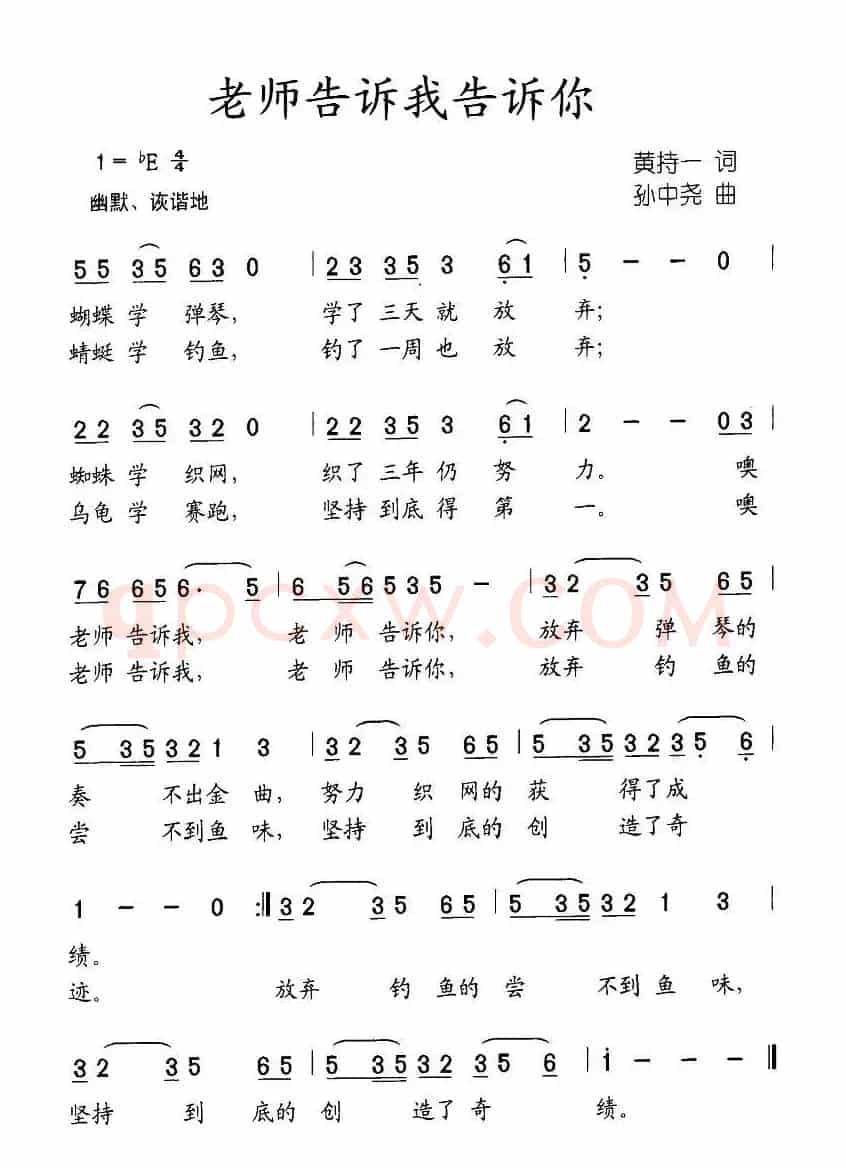 老师告诉我告诉你
1 = ♭E 4/4
黄持一 词
幽默、诙谐地
孙中尧 曲
5 5 3 5 6 3 0 | 2 3 3 5 3 6 1 | 5 - - 0 |
蝴蝶 学 弹琴, 学了 三天 就 放 弃;
蜻蜓 学 钓鱼, 钓了 一周 也 放 弃;
2 2 3 5 3 2 0 | 2 2 3 5 3 6 1 | 2 - - 0 3 |
蜘蛛 学 织网, 织了 三年 仍 努 力。 噢
乌龟 学 赛跑, 坚持 到底 得 第 一。 噢
7 6 6 5 6· 5 | 6 5 6 5 3 5 - | 3 2 3 5 6 5 |
老师 告诉我, 老 师 告诉你, 放弃 弹 琴的
老师 告诉我, 老 师 告诉你, 放弃 钓 鱼的
qpcxw.COM
5 3 5 3 2 1 3 | 3 2 3 5 6 5 | 5 3 5 3 2 3 5 6 |
奏 不出金 曲, 努力 织 网的 获 得了成
尝 不到鱼 味, 坚持 到 底的 创 造了奇
1 - - 0 :‖ 3 2 3 5 6 5 | 5 3 5 3 2 1 3 |
绩。
迹。 放弃 钓 鱼的 尝 不到 鱼 味,
3 2 3 5 6 5 | 5 3 5 3 2 3 5 6 | i - - - ‖
坚持 到 底的 创 造了 奇 绩。